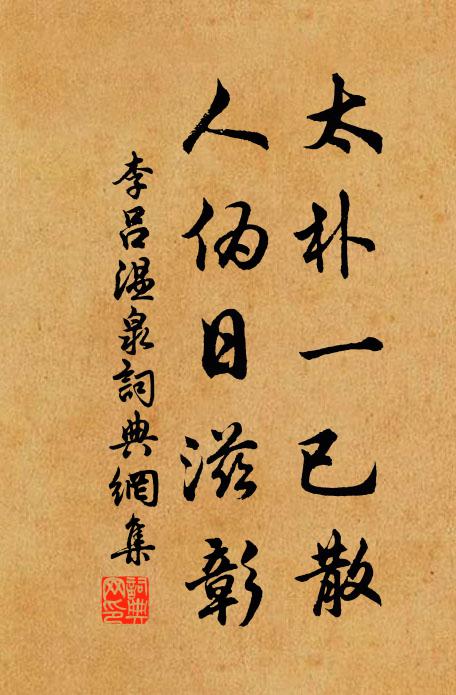 太朴一已散
人伪日滋彰
李吕温泉詞典網集
詞典网印